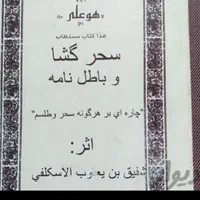 هوعلی
هذا کتاب مستطاب
سحر گشا
و باطل نامه
"چاره اي بر هرگونه سحر وطلسم"
اثر:
شفیق بن یعقوب الاسکلفي
دیوار